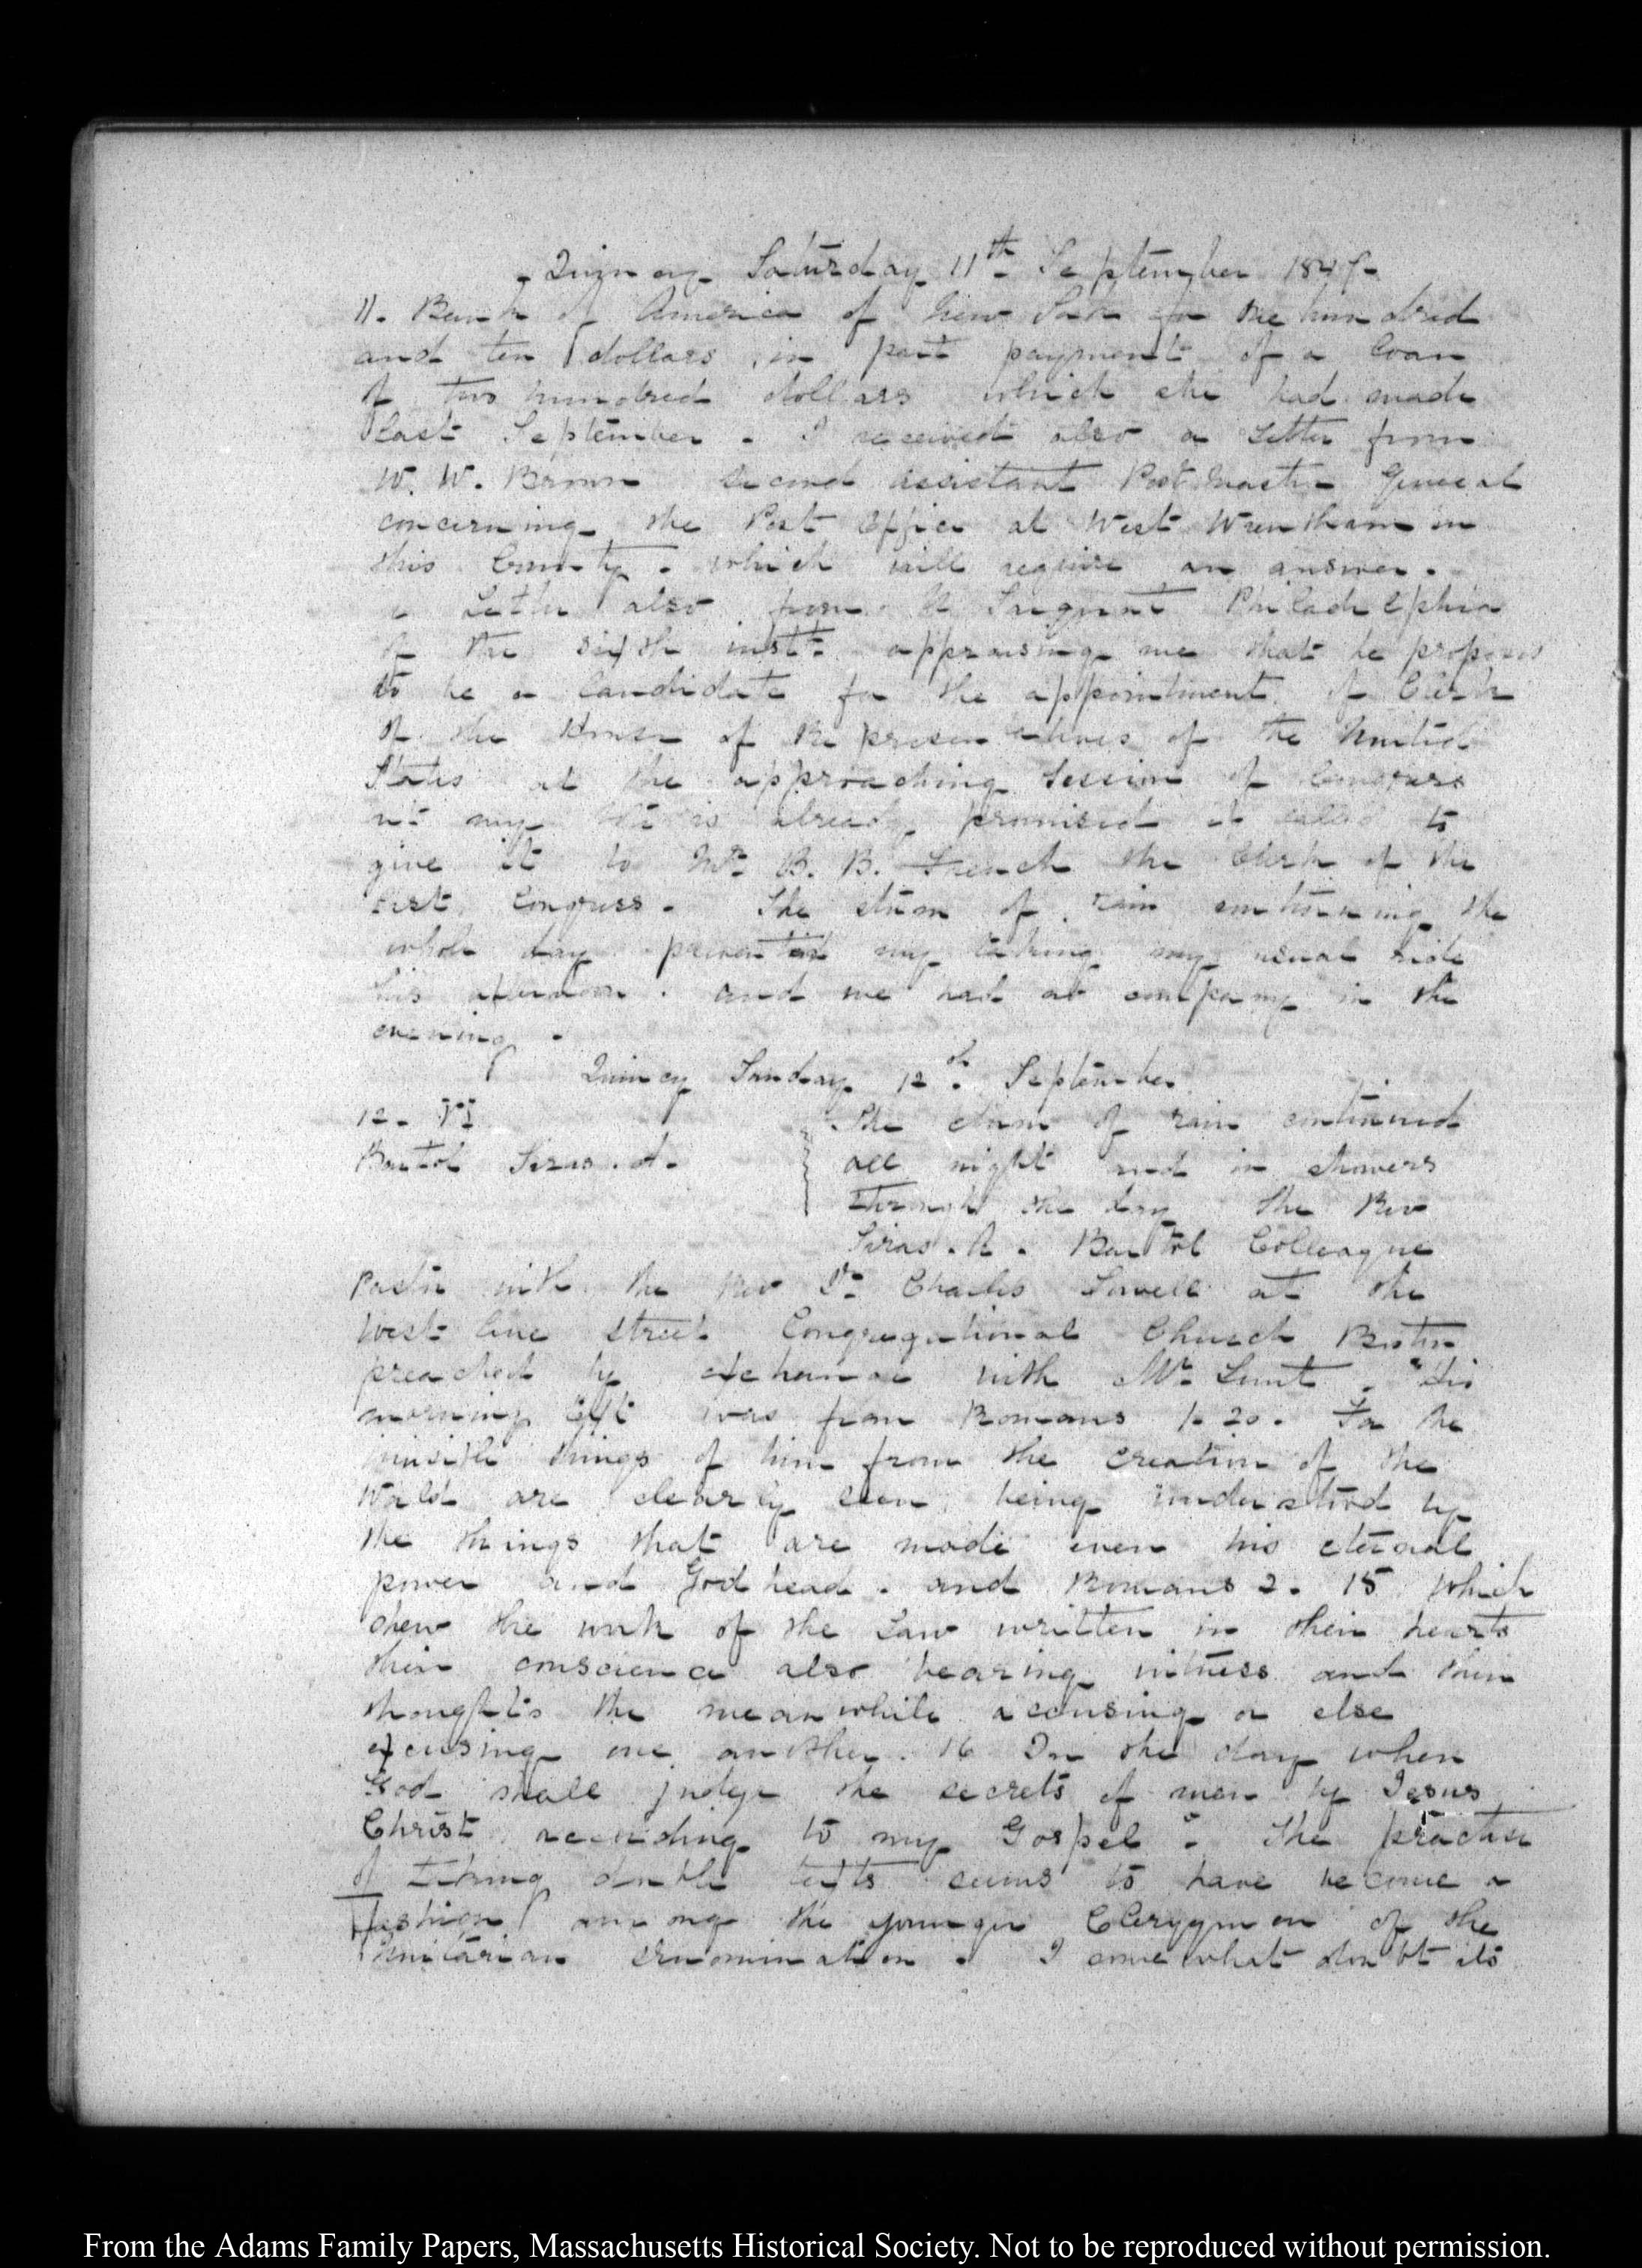 Quincy Saturday 11th September 1847.
11. Bank of America of New York for one hundred
and ten dollars in part payment of a loan
of two hundred dollars which she had made
last September. I received also a Letter from
W. W. Brown second assistant Post Master General
concerning the Post Office at West Wrentham in
this County. which will require an answer.
a Letter also from Sargent Philadelphia
of the sixth instt. apprising me that he proposes
to be a Candidate for the appointment of Clerk
of the House of Representatives of the United
States at the approaching Session of Congress
my is already promised to
give it to Mr. B. B. French the Clerk of the
last Congress. The storm of rain continuing the
whole day prevented my taking my usual ride
this afternoon. and we had no company in the
evening.
Quincy Sunday 12th. September
12. VI.
Bartol
The storm of rain continued
all night and in showers
through the day The Rev
Bartol Colleague
Pastor with the Rev Dr. Charles Lowell at the
West street Congregational Church Boston
preached by exchange with Mr. Lunt. His
morning text was from Romans 1. 20. For the
invisible things of him from the creation of the
World are clearly seen being understood by
the things that are made even his eternal
power and God head. and Romans 2. 15 Which
shew the work of the Law written in their hearts
their conscience also bearing witness and their
thoughts the meanwhile accusing or else
excusing one another. 16 In the day when
God shall judge the secrets of men by Jesus
Christ according to my Gospel". The practise
of taking double texts seems to have become a
fashion among the younger Clergymen of the
Unitarian denomination. I somewhat doubt its
From the Adams Family Papers, Massachusetts Historical Society. Not to be reproduced without permission.